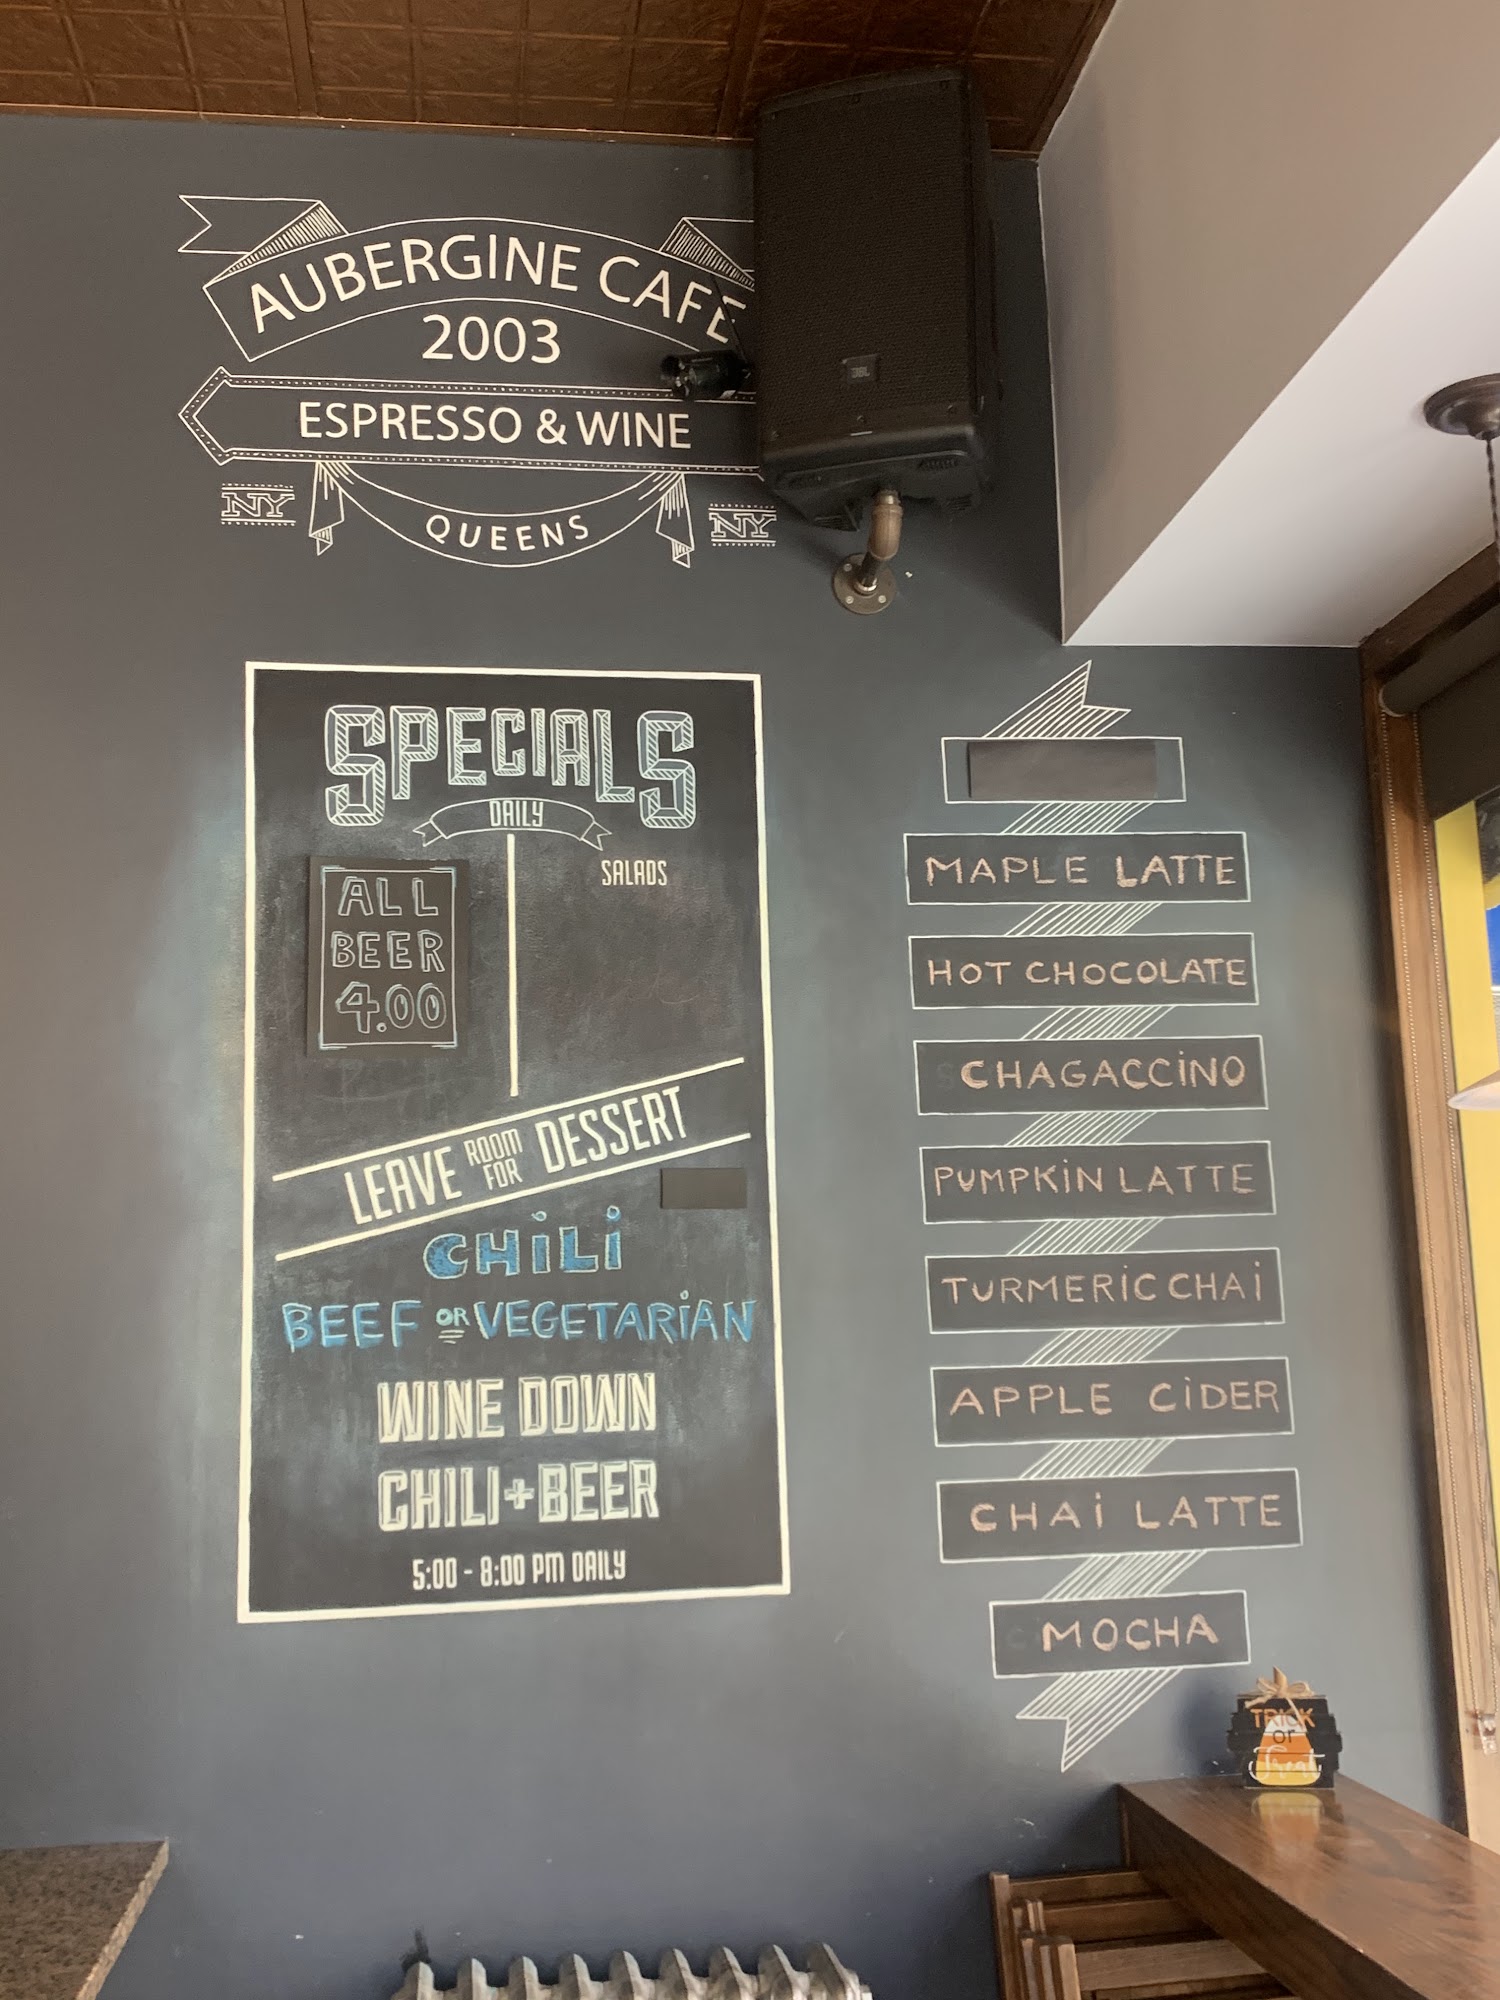 AUBERGINE CAFE
2003
ESPRESSO & WINE
NY
QUEENS
NY
JBL
SPECIALS
DAILY
SALADS
ALL
BEER
4.00
LEAVE ROOM FOR DESSERT
CHILI
BEEF OR VEGETARIAN
WINE DOWN
CHILI+BEER
5:00 - 8:00 PM DAILY
MAPLE LATTE
HOT CHOCOLATE
CHAGACCINO
PUMPKIN LATTE
TURMERIC CHAI
APPLE CIDER
CHAI LATTE
MOCHA
TRICK
or
Treat